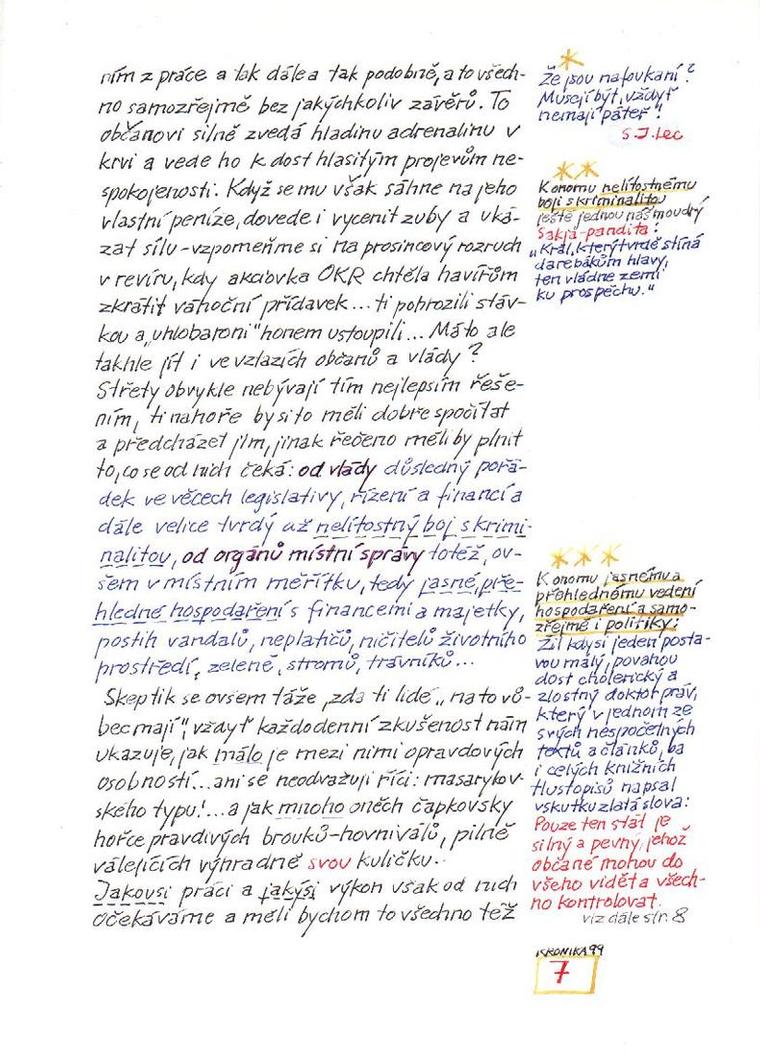 ním z práce a tak dále a tak podobně, a to všech-
no samozřejmě bez jakýchkoliv závěrů. To
občanovi silně zvedá hladinu adrenalinu v
krvi a vede ho k dost hlasitým projevům ne-
spokojenosti. Když se mu však sáhne na jeho
vlastní peníze, dovede i vycenit zuby a uká-
zat sílu - vzpomeňme si na prosincový rozruch
v revíru, kdy akciovka OKR chtěla havířům
zkrátit vánoční přídavek... ti pohrozili stáv-
kou a „uhlobaroni" honem ustoupili... Má to ale
takhle jít i ve vztazích občanů a vlády?
Střety obvykle nebývají tím nejlepším řeše-
ním, ti nahoře by si to měli dobře spočítat
a předcházet jim, jinak řečeno měli by plnit
to, co se od nich čeká: od vlády důsledný pořá-
dek ve věcech legislativy, řízení a financí a
dále velice tvrdý až nelítostný boj s krimi-
nalitou, od orgánů místní správy totéž, ov-
šem v místním měřítku, tedy jasné, pře-
hledné hospodaření s financemi a majetky,
postih vandalů, neplatičů, ničitelů životního
prostředí, zeleně, stromů, trávníků...
Skeptik se ovšem táže, zda ti lidé „na to vů-
bec mají", vždyť každodenní zkušenost nám
ukazuje, jak málo je mezi nimi opravdových
osobností... ani se neodvažuji říci: masarykov-
ského typu!... a jak mnoho oněch čapkovsky
hořce pravdivých brouků-hovniválů, pilně
válejících výhradně svou kuličku..
Jakousi práci a jakýsi výkon však od nich
očekáváme a měli bychom to všechno též
*
Že jsou nafoukaní?
Musejí být, vždyť
nemají páteř!
S.J.Lec
**
K onomu nelítostnému
boji s kriminalitou
ještě jednou náš moudrý
Sakja-pandita:
„Král, který tvrdě stíná
darebákům hlavy,
ten vládne zemi
ku prospěchu."
***
K onomu jasnému a
přehlednému vedení
hospodaření a samo-
zřejmě i politiky:
Žil kdysi jeden posta-
vou malý, povahou
dost cholerický a
zlostný doktor práv,
který v jednom ze
svých nespočetných
textů a článků, ba
i celých knižních
tlustopisů napsal
vskutku zlatá slova:
Pouze ten stát je
silný a pevný, jehož
občané mohou do
všeho vidět a všech-
no kontrolovat.
viz dále str. 8
KRONIKA 99
7